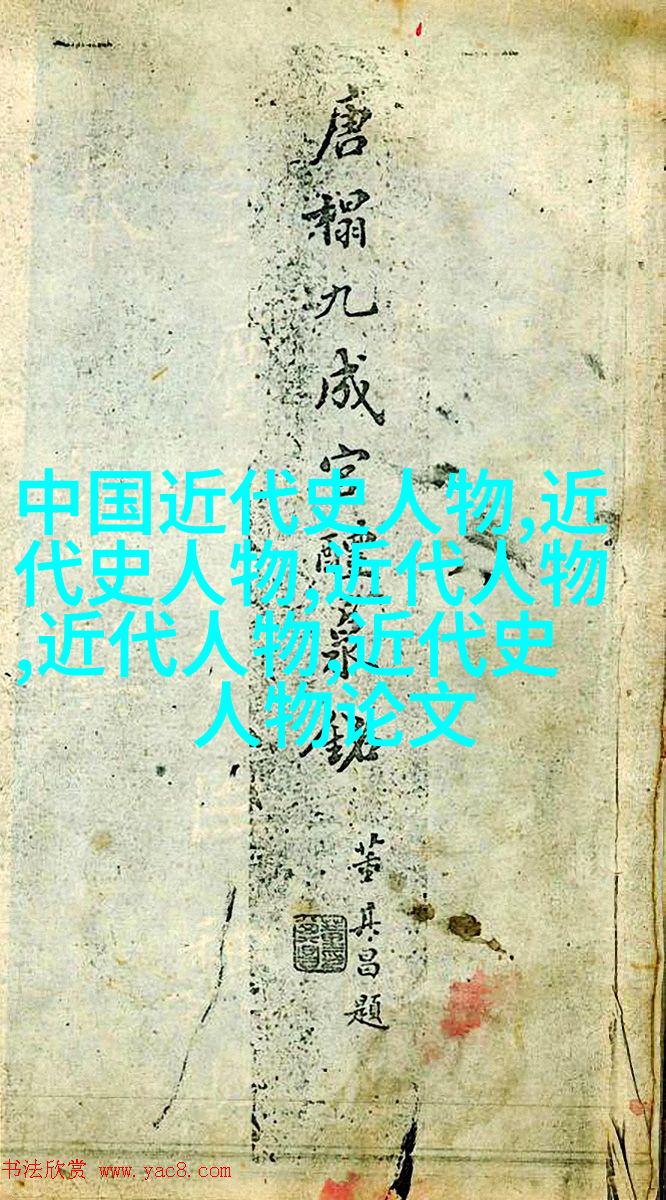 唐榻九成宫醴泉銘
董其昌題
中国近代史人物,近
代史人物,近代人物
,近代人物,近代史
人物论文
书法欣赏 www.yac8.com